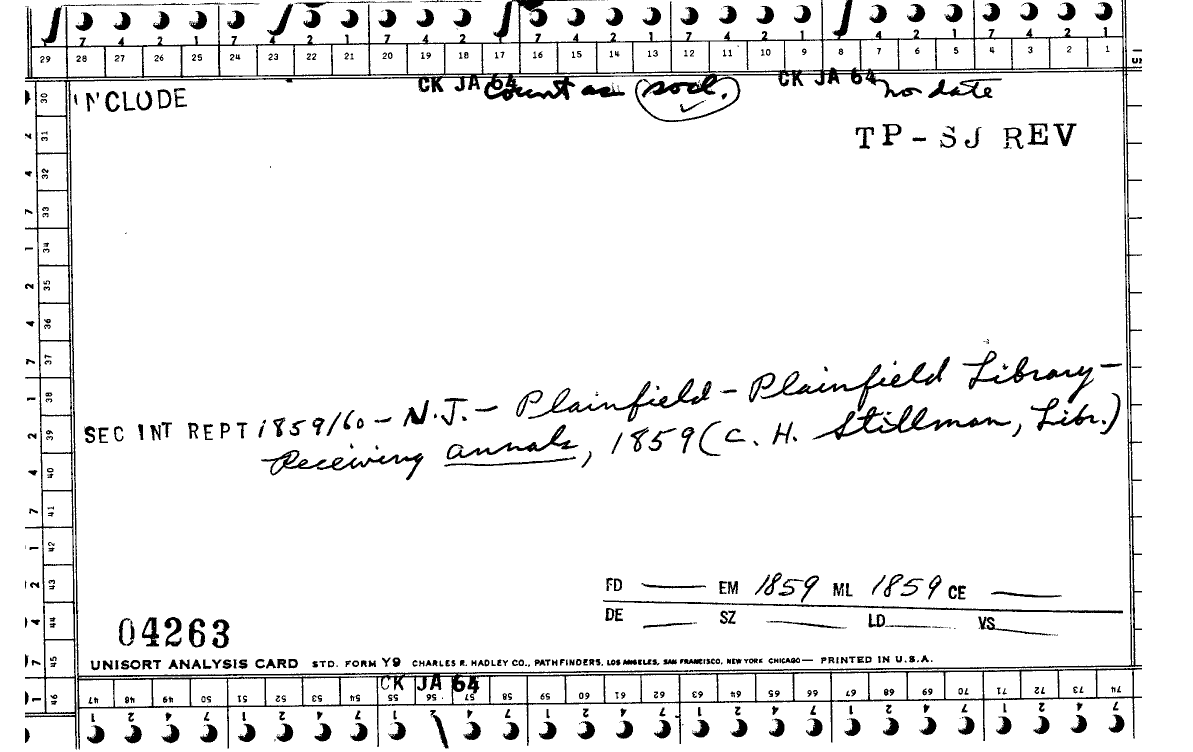 7 4 2 1 7 4 2 1 7 4 2 1 7 4 2 1 7 4 2 1 7 4 2 1
29 28 27 26 25 24 23 22 21 20 19 18 17 16 15 14 13 12 11 10 9 8 7 6 5 4 3 2 1
CK JA 64 count as socl. CK JA 64 no date
INCLUDE
TP-SJ REV
SEC INT REPT 1859/60 - N.J. - Plainfield - Plainfield Library -
Receiving annals, 1859 (C. H. Stillman, Libr.)
FD EM 1859 ML 1859 CE
DE SZ LD VS
04263
UNISORT ANALYSIS CARD STD. FORM Y9 CHARLES R. HADLEY CO., PATHFINDERS, LOS ANGELES, SAN FRANCISCO, NEW YORK CHICAGO — PRINTED IN U.S.A.
CK JA 64
47 48 49 50 51 52 53 54 55 56 57 58 59 60 61 62 63 64 65 66 67 68 69 70 71 72 73 74
1 2 4 7 1 2 4 7 1 2 4 7 1 2 4 7 1 2 4 7 1 2 4 7 1 2 4 7
30
31
32
33
34
35
36
37
38
39
40
41
42
43
44
45
46